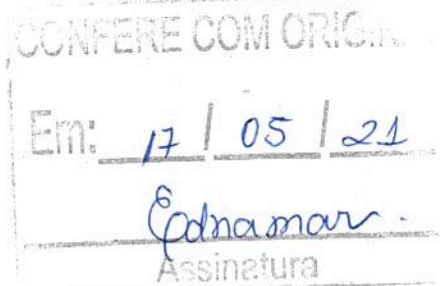 CONFERE COM ORIGIN
Em: 17 / 05 / 21
Ednamar.
Assinatura